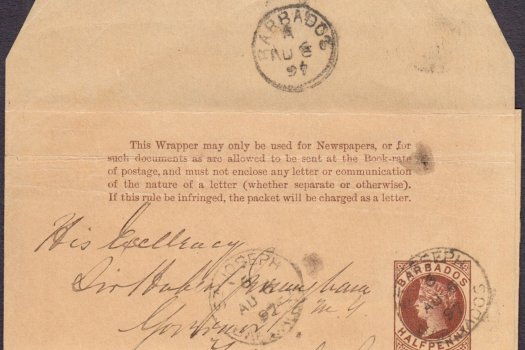 BARBADOS
AU
This Wrapper may only be used for Newspapers, or for
such documents as are allowed to be sent at the Book-rate
of postage, and must not enclose any letter or communication
of the nature of a letter (whether separate or otherwise).
If this rule be infringed, the packet will be charged as a letter.
His Excellency
Sir
Governor
ST. JOSEPH
AU
BARBADOS
HALFPENNY
JOSEPH